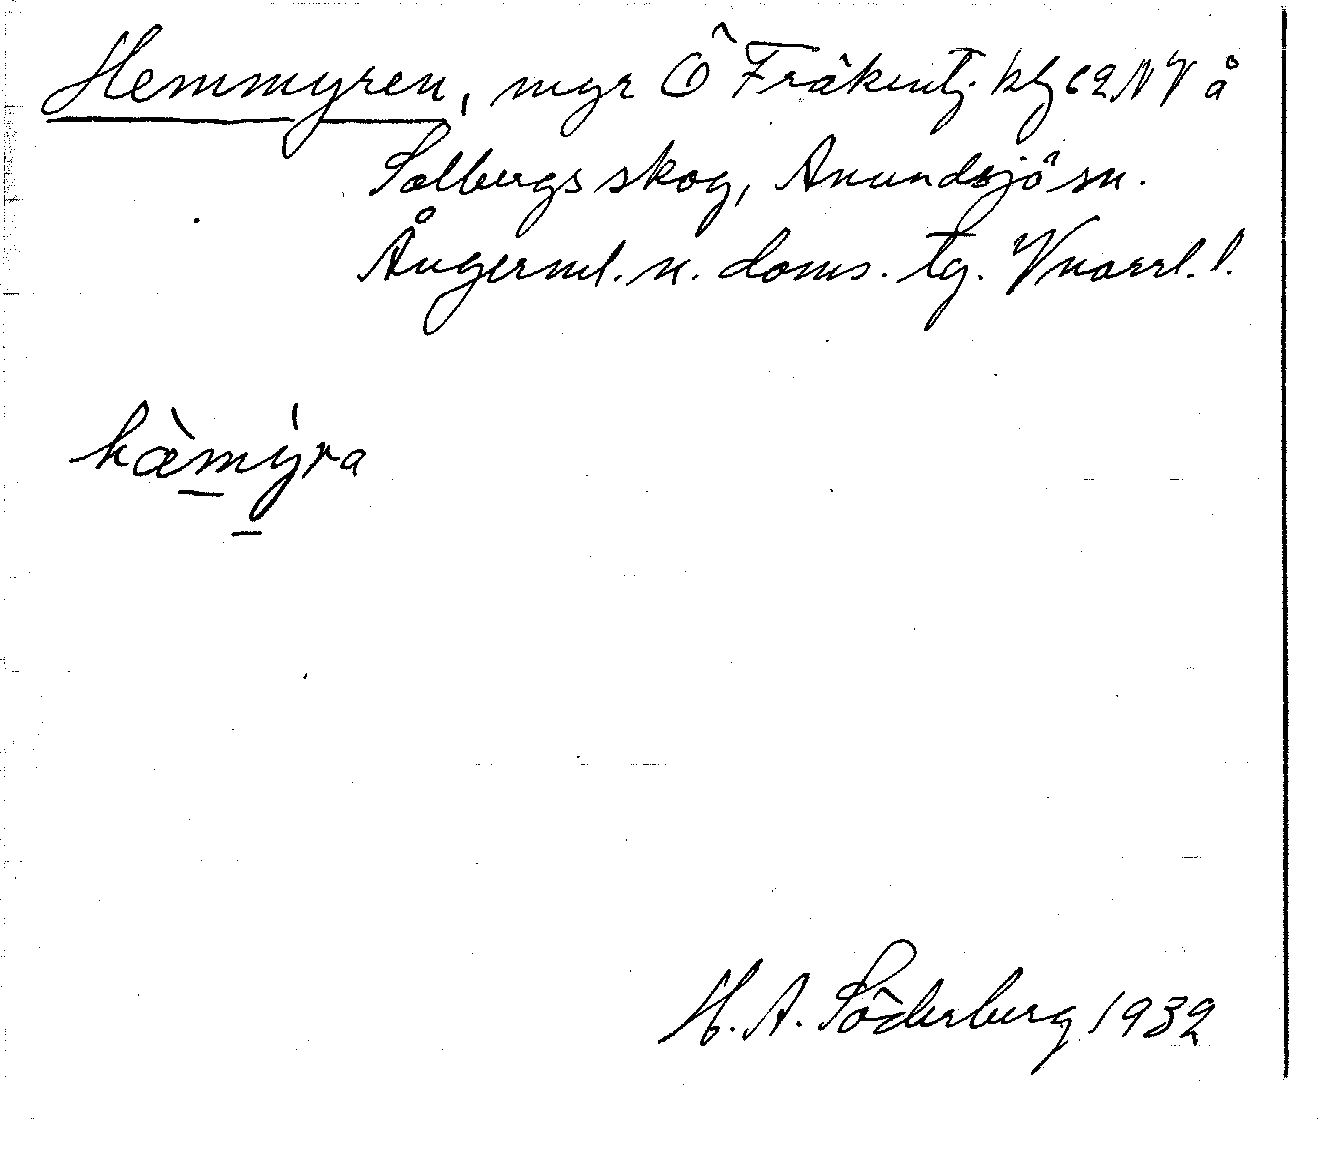 Hemmyren, myr Ö Fräkentj. kbl 62 NV å
Solbergs skog, Anundsjö sn.
Ångerml. n. doms. tg. Vnorrl. l.
hæ̀mýra
H. A. Söderberg 1932